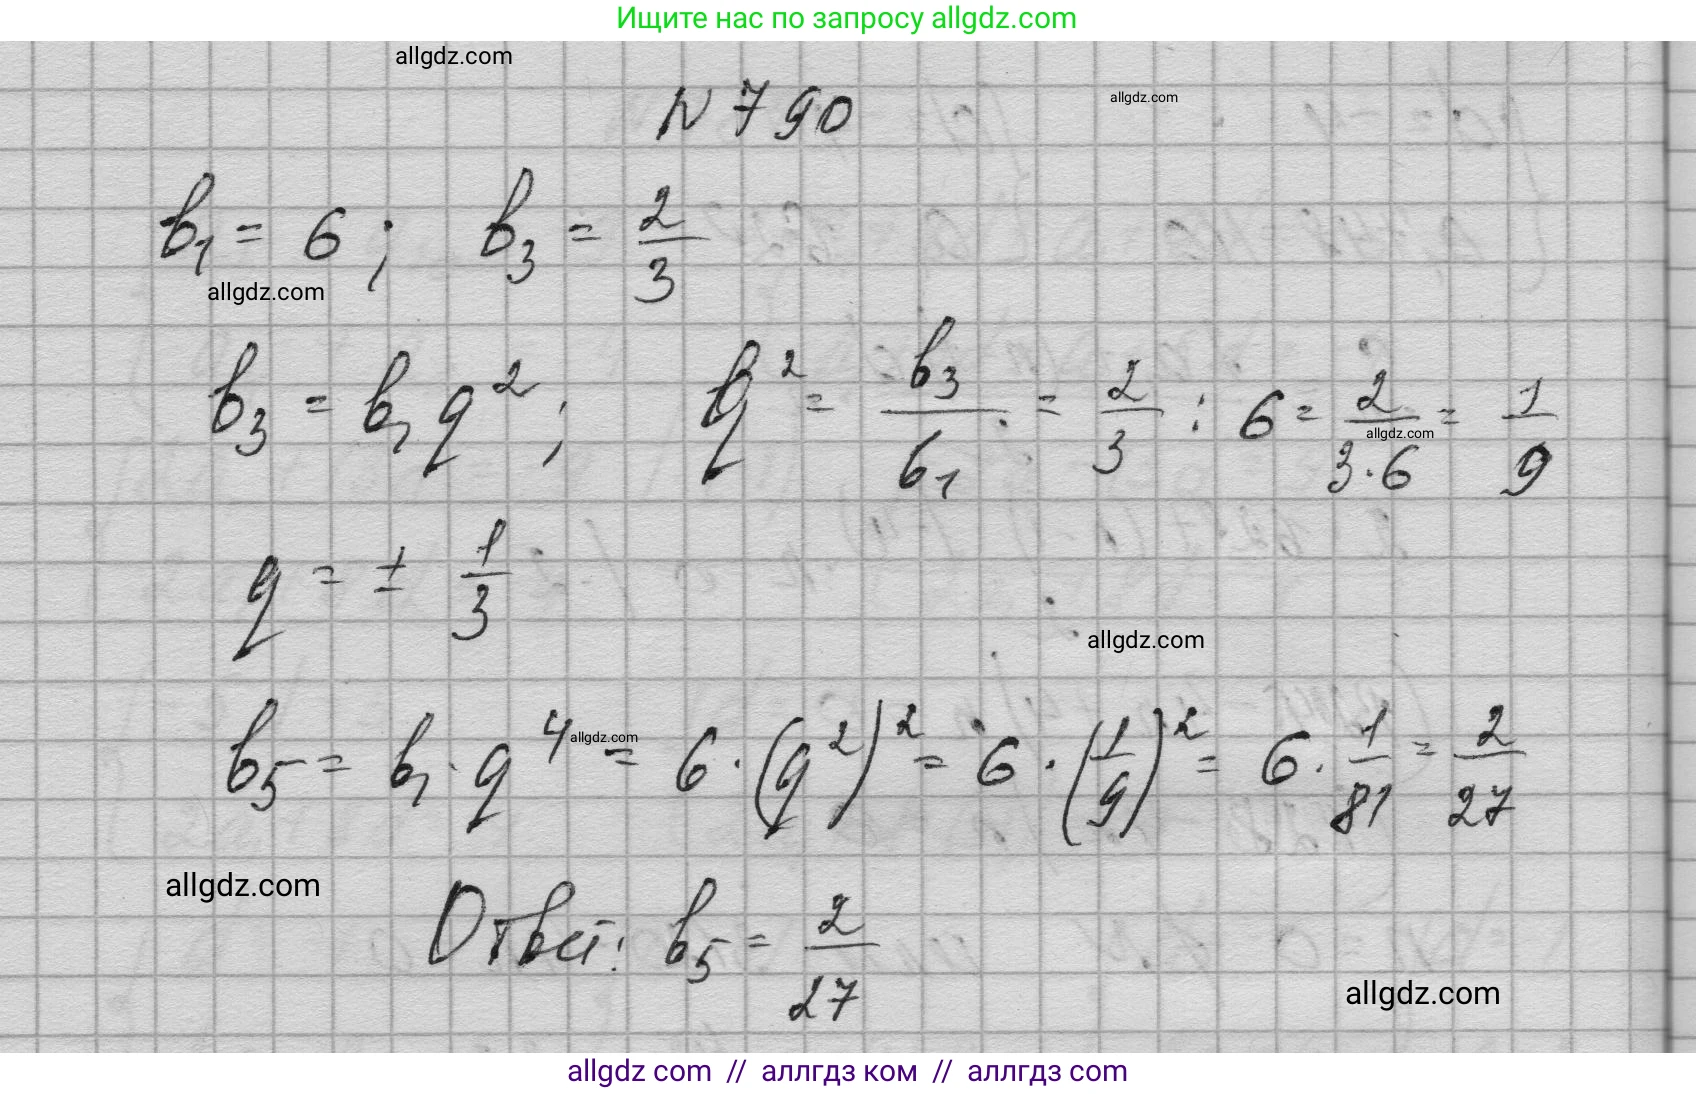 Ищите нас по запросу allgdz.com
allgdz.com
N 790
allgdz.com
b₁ = 6 ; b₃ = 2/3
allgdz.com
b₃ = b₁ q² ; q² = b₃/b₁ = 2/3 : 6 = 2/(3·6) = 1/9
allgdz.com
q = ± 1/3
allgdz.com
b₅ = b₁ · q⁴ = 6 · (q²)² = 6 · (1/9)² = 6 · 1/81 = 2/27
allgdz.com
allgdz.com
Ответ: b₅ = 2/27
allgdz.com
allgdz com // аллгдз ком // аллгдз com